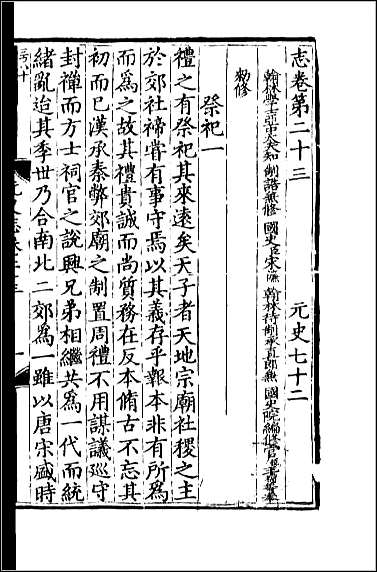 志卷第二十三 元史七十二
翰林學士亞中大夫知制誥兼修國史臣宋濂 翰林待制承直郎兼國史院編修官臣王禕等奉
勑修
祭祀一
禮之有祭祀其來遠矣天子者天地宗廟社稷之主
於郊社禘嘗有事守焉以其義存乎報本非有所爲
而爲之故其禮貴誠而尚質務在反本脩古不忘其
初而已漢承秦弊郊廟之制置周禮不用謀議巡守
封禪而方士祠官之說興兄弟相繼共爲一代而統
緒亂迨其季世乃合南北二郊爲一雖以唐宋盛時